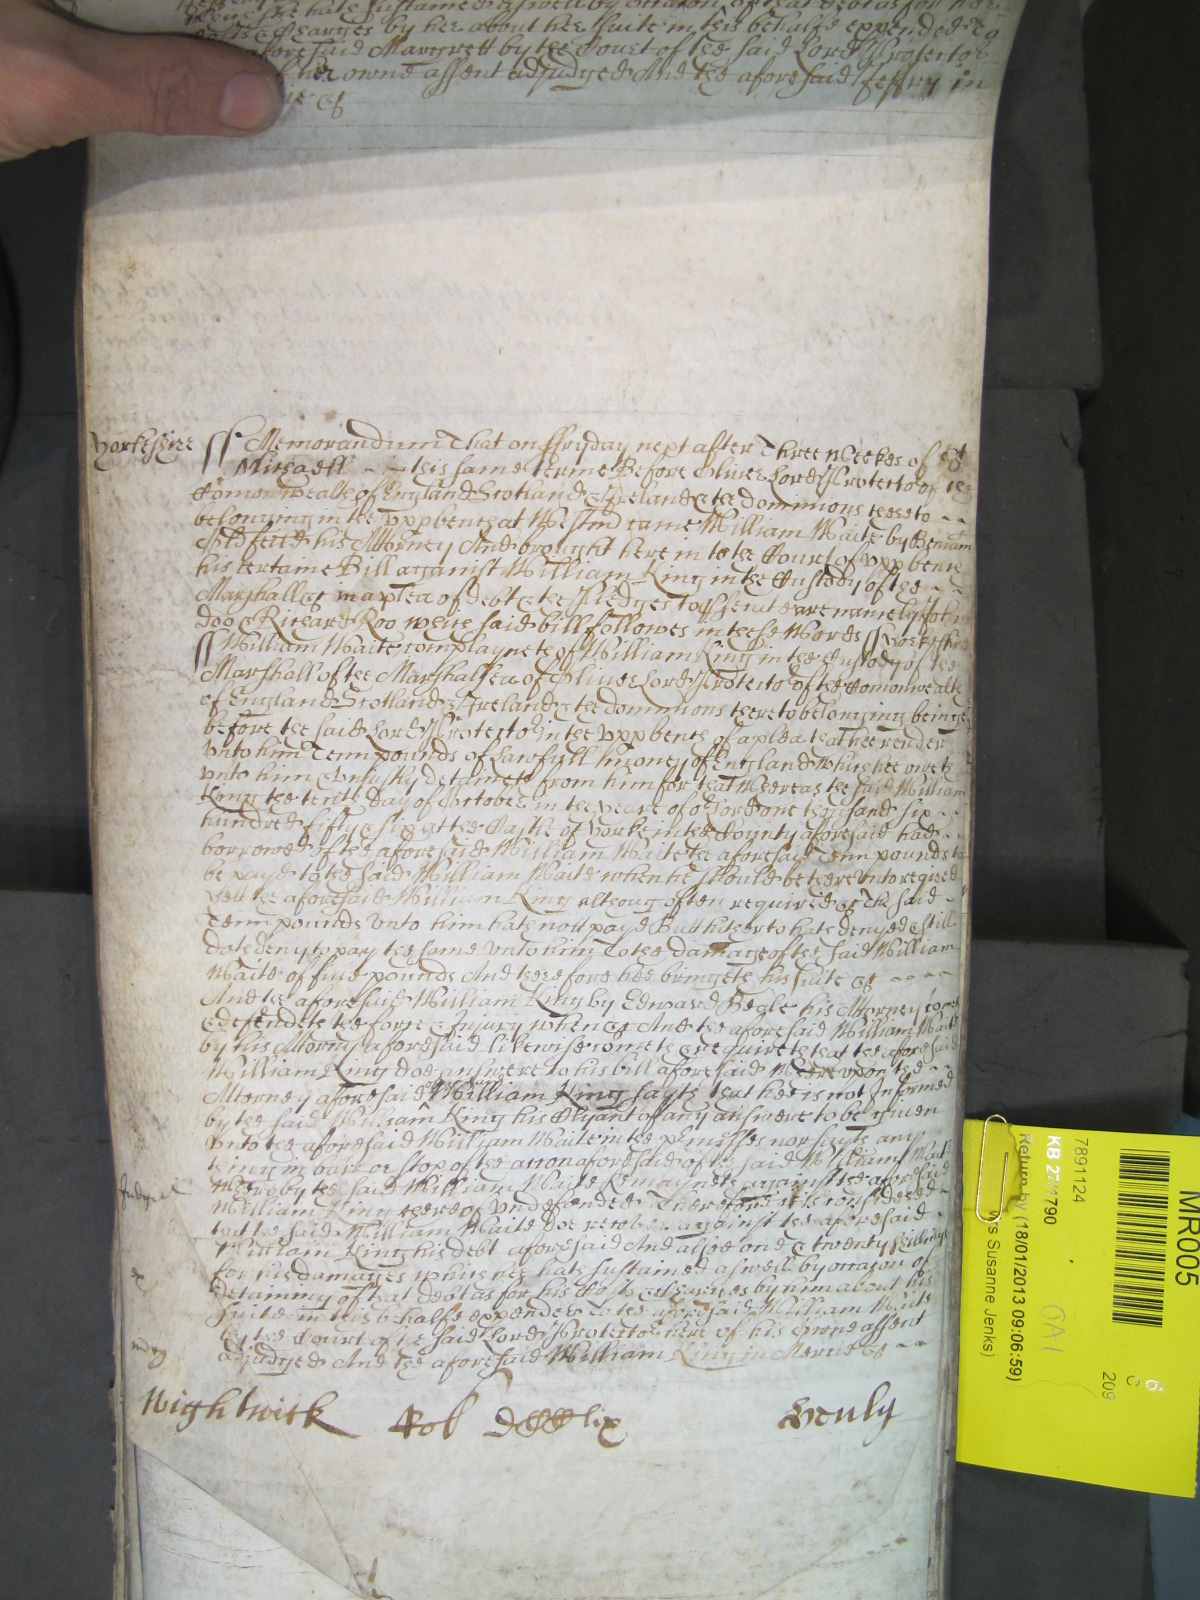 them she hath sustained aswell by occasion of that debt as for her
Costs & Charges by her about her suite in this behalfe expended to
aforesaid Margrett by the Court of the said Lord Protector
her owne assent adjudged And the aforesaid Jeffrey in
&c
Yorkshire ss Memorandum That on ffryday next after Three Weekes of St
Michaell - - this same terme Before Oliver Lord Protector of the
Comonwealth of England Scotland & Ireland & the dominions thereto - -
belonging in the upp bench at Westmr came William Waite by Beniam
Oldfeild his Attorney And brought here in to the Court of upp bench
his certaine Bill against William King in the Custody of the - -
Marshall &c in a plea of debt & the Pledges to prosecute are namely John
doo & Richard Roo which said bill followes in these Words ss Yorkshire
ss William Waite complayneth of William King in the Custody of the
Marshall of the Marshallsea of Oliver Lord Protector of the Comonwealth
of England Scotland & Ireland & the dominions thereto belonging being
before the said Lord Protector in the upp bench of a plea that hee render
unto him Tenn pounds of Lawfull money of England Which hee oweth
unto him & uniustly detaineth from him for that Whereas the said William
King the tenth day of October in the yeare of our Lord one thousand six - -
hundred fifty & six at the Castle of Yorke in the County aforesaid had - -
borrowed of the aforesaid William Waite the aforesaid Tenn pounds to
be payd to the said William Waite when he should be thereunto required
yett the aforesaid William King althoug often required &c The said -
Tenn pounds unto him hath nott payd Butt hitherto hath denyed & still
doth deny to pay the same unto him To the damage of the said William
Waite of five pounds And therefore hee bringeth his suite &c - - - -
And the aforesaid William King by Edward Beale his Attorney cometh
& defendeth the force & Injury when &c And the aforesaid William Waite
by his Attorny aforesaid likewise cometh & requireth that the aforesaid
William King doe answere to his bill aforesaid Whereupon the - -
Attorney aforesaid of William King sayth that hee is not Informed
by the said William King his Clyant of any answere to be given
unto the aforesaid William Waite in the premisses nor sayth any
thing in barr or stop of the accon aforesaid of the said William Waite
Whereby the said William Waite Remayneth against the aforesaid
Judgmt William King thereof undefended Therefore it is considered
that the said William Waite doe recover against the aforesaid -
William King his debt aforesaid And alsoe one & twenty shillings
for his damages which hee hath sustained aswell by occasion of
detaining of that debt as for his Costs & charges by him about his
suite in this behalfe expended to the aforesaid William Waite
by the Court of the said Lord Protector here of his owne assent
adjudged And the aforesaid William King in Mercie &c - -
Wightwick Rol DCCClix Henly
MR005
6
C
209
7891124
KB 27/1790
Return by (18/01/2013 09:06:59)
Susanne Jenks)